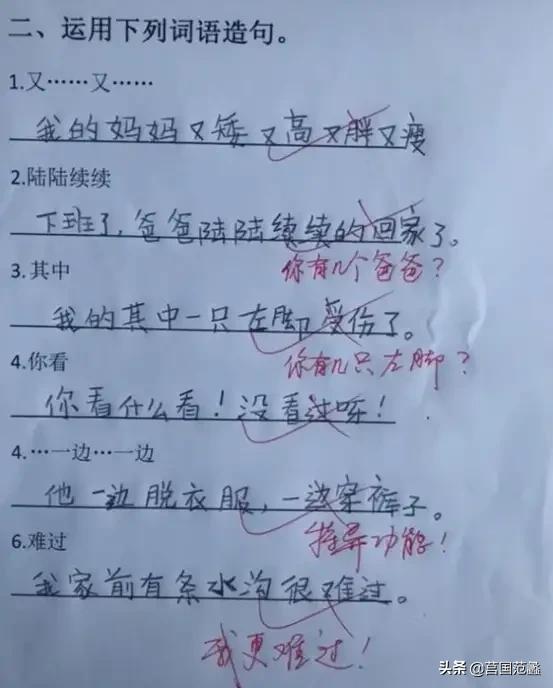 二、运用下列词语造句。
1.又……又……
我的妈妈又矮又高又胖又瘦
2.陆陆续续
下班了,爸爸陆陆续续的回家了。
你有几个爸爸?
3.其中
我的其中一只左脚受伤了。
你有几只左脚?
4.你看
你看什么看!没看过呀!
4.…一边…一边
他一边脱衣服,一边穿裤子。
特异功能!
6.难过
我家前有条水沟很难过。
我更难过!
头条 @莒国范蠡